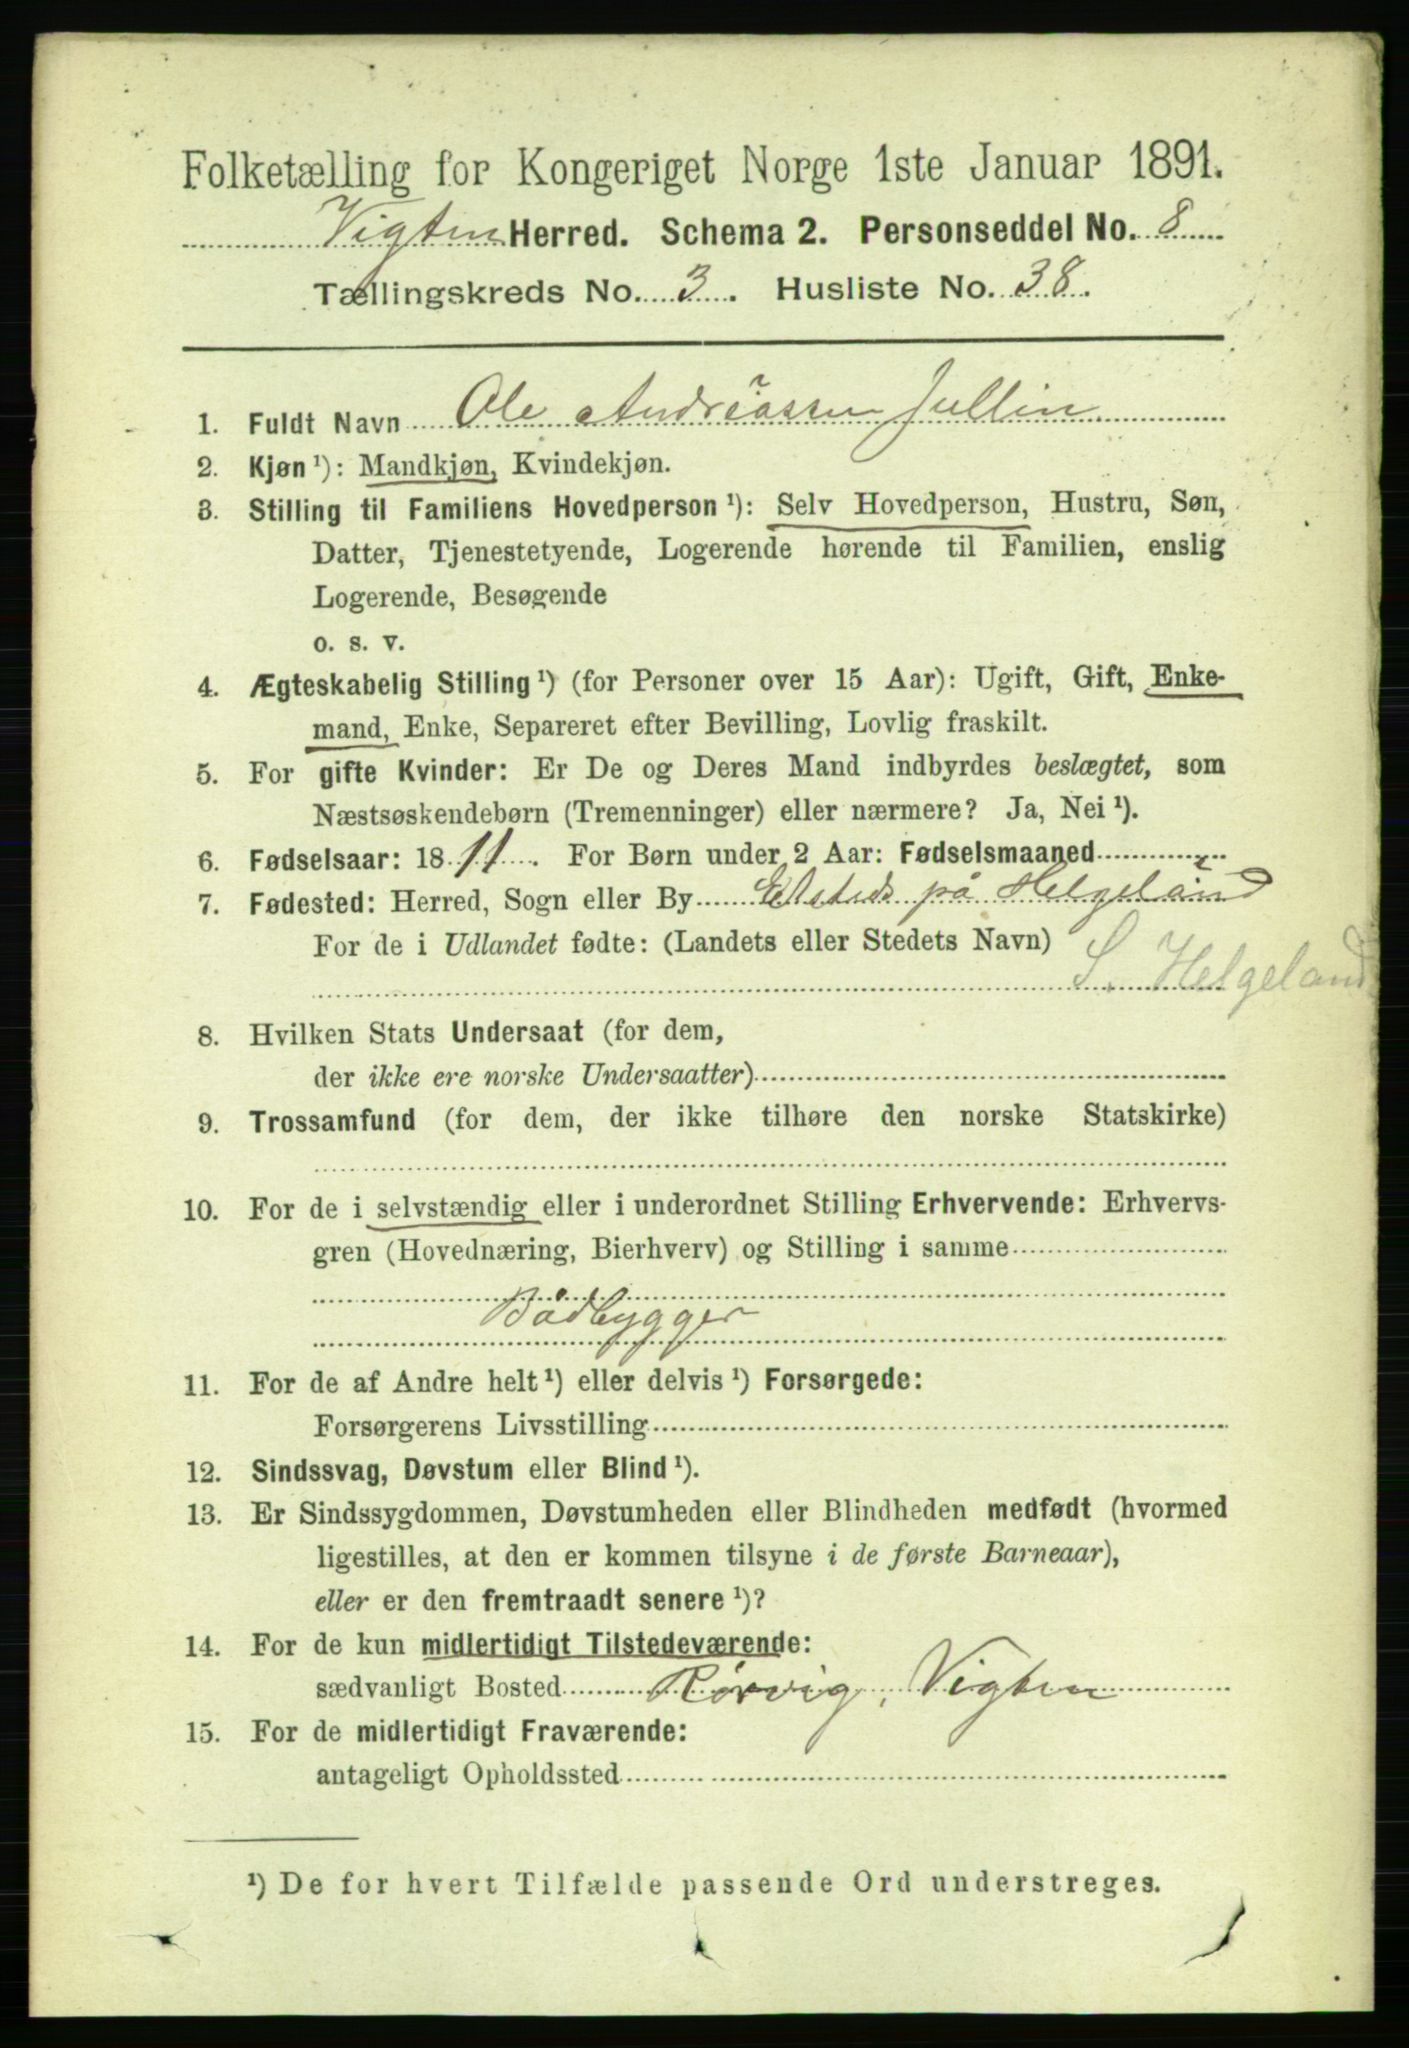 Folketælling for Kongeriget Norge 1ste Januar 1891.
Vigten Herred. Schema 2. Personseddel No. 8
Tællingskreds No. 3. Husliste No. 38.
1. Fuldt Navn Ole Andreassen Jullin
2. Kjøn ¹): Mandkjøn, Kvindekjøn.
3. Stilling til Familiens Hovedperson ¹): Selv Hovedperson, Hustru, Søn,
Datter, Tjenestetyende, Logerende hørende til Familien, enslig
Logerende, Besøgende
o. s. v.
4. Ægteskabelig Stilling ¹) (for Personer over 15 Aar): Ugift, Gift, Enke-
mand, Enke, Separeret efter Bevilling, Lovlig fraskilt.
5. For gifte Kvinder: Er De og Deres Mand indbyrdes beslægtet, som
Næstsøskendebørn (Tremenninger) eller nærmere? Ja, Nei ¹).
6. Fødselsaar: 18 11. For Børn under 2 Aar: Fødselsmaaned
7. Fødested: Herred, Sogn eller By på Helgeland
For de i Udlandet fødte: (Landets eller Stedets Navn)
S. Helgeland
8. Hvilken Stats Undersaat (for dem,
der ikke ere norske Undersaatter)
9. Trossamfund (for dem, der ikke tilhøre den norske Statskirke)
10. For de i selvstændig eller i underordnet Stilling Erhvervende: Erhvervs-
gren (Hovednæring, Bierhverv) og Stilling i samme
Bådbygger
11. For de af Andre helt ¹) eller delvis ¹) Forsørgede:
Forsørgerens Livsstilling
12. Sindssvag, Døvstum eller Blind ¹).
13. Er Sindssygdommen, Døvstumheden eller Blindheden medfødt (hvormed
ligestilles, at den er kommen tilsyne i de første Barneaar),
eller er den fremtraadt senere ¹)?
14. For de kun midlertidigt Tilstedeværende:
sædvanligt Bosted Rørvig, Vigten
15. For de midlertidigt Fraværende:
antageligt Opholdssted
¹) De for hvert Tilfælde passende Ord understreges.